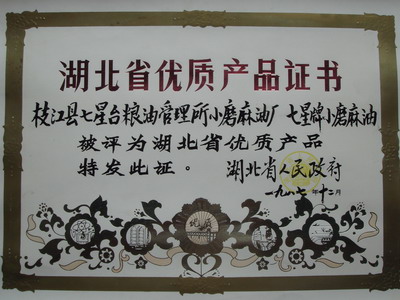 湖北省优质产品证书
枝江县七星台粮油管理所小磨麻油厂 七星牌小磨麻油
被评为湖北省优质产品
特发此证。 湖北省人民政府
一九八七年十二月
优质